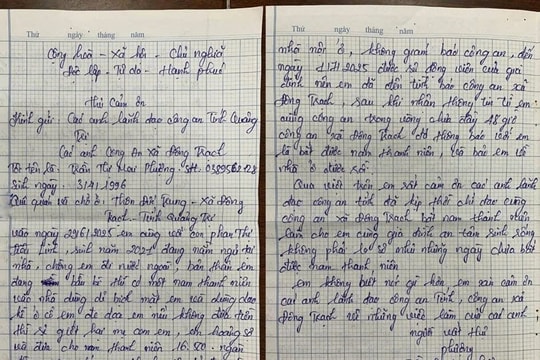 Thứ ngày tháng năm
Cộng hoà - Xã hôi - Chủ nghĩa
Độc lập - Tự do - Hạnh phúc
Thư Cảm ơn
Kính gửi: Các anh lãnh đạo công an Tỉnh Quảng
Trị
Các anh công an xã Đông Trạch
Tôi tên là: Trần Thị Mai Phương
sinh ngày: 3141996
Quê quán và chỗ ở: thôn Đức Trung - xã Đông
Trạch - Tỉnh Quảng Trị
vào ngày 29161 2025 em cùng với con phan Thị
Linh, sinh năm 2021 đang nằm ngủ tại
nhà, chồng em đi nước ngoài, bản thân em
đang bầu bì thì có một nam thanh niên
vào nhà dùng bịt mặt em và dùng dao
kề ở cổ em đe doạ em nếu không đưa tiền
thì sẽ giết hai mẹ con em, em hoảng sợ
và đưa cho nam thanh niên 16.520 ngàn
Thứ ngày tháng năm
nhà nên ở, không giám báo công an, đến
ngày 11712025 được sự động viên của gia
đình nên em đã đến trình báo công an xã
Đông Trạch, sau khi nhận thông tin từ em
cũng công an trong vòng chưa đầy 48 giờ
công an xã Đông Trạch đã thông báo với em
là bắt được nam thanh niên, và bảo em về
nhà ở được rồi
Qua viết trên em rất cảm ơn các anh lãnh
đạo công an tỉnh đã kịp thời chỉ đạo cùng
công an xã Đông Trạch bắt nam thanh niên
làm cho em cùng gia đình an tâm sinh sống
không phải lo sợ như những ngày chưa bắt
được nam thanh niên
em không biết nói gì hơn, em xin cảm ơn
các anh lãnh đạo công an Tỉnh, công an xã
Đông Trạch về những việc làm của các anh
người viết thư
phương